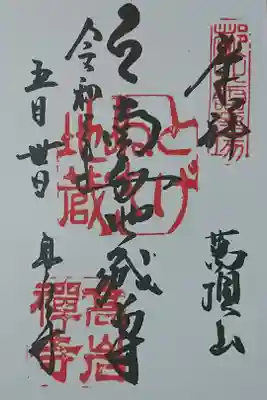 奉拝
萬頂山
南無地蔵尊
とげ
ぬき
地蔵
令和
五月廿日
高岩寺
高岩
禅寺